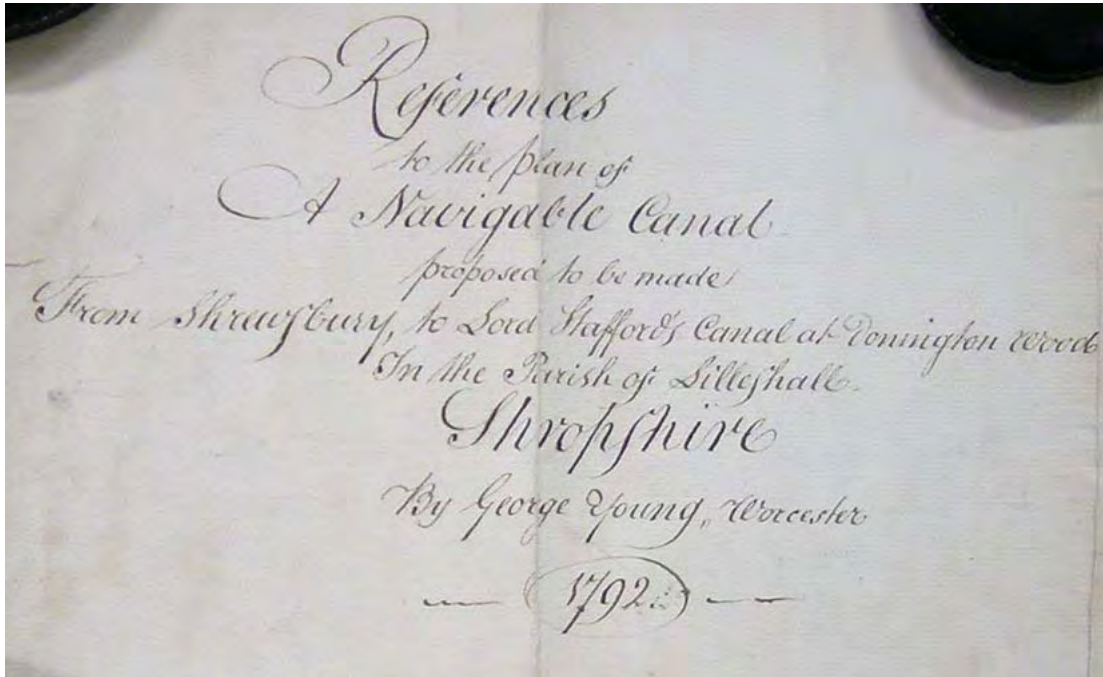 References
to the plan of
A Navigable Canal
proposed to be made
From Shrewſbury, to Lord Stafford's Canal at Donnington Wood
In the Pariſh of Lilleſhall.
Shropſhire
By George Young, Worcester
1792